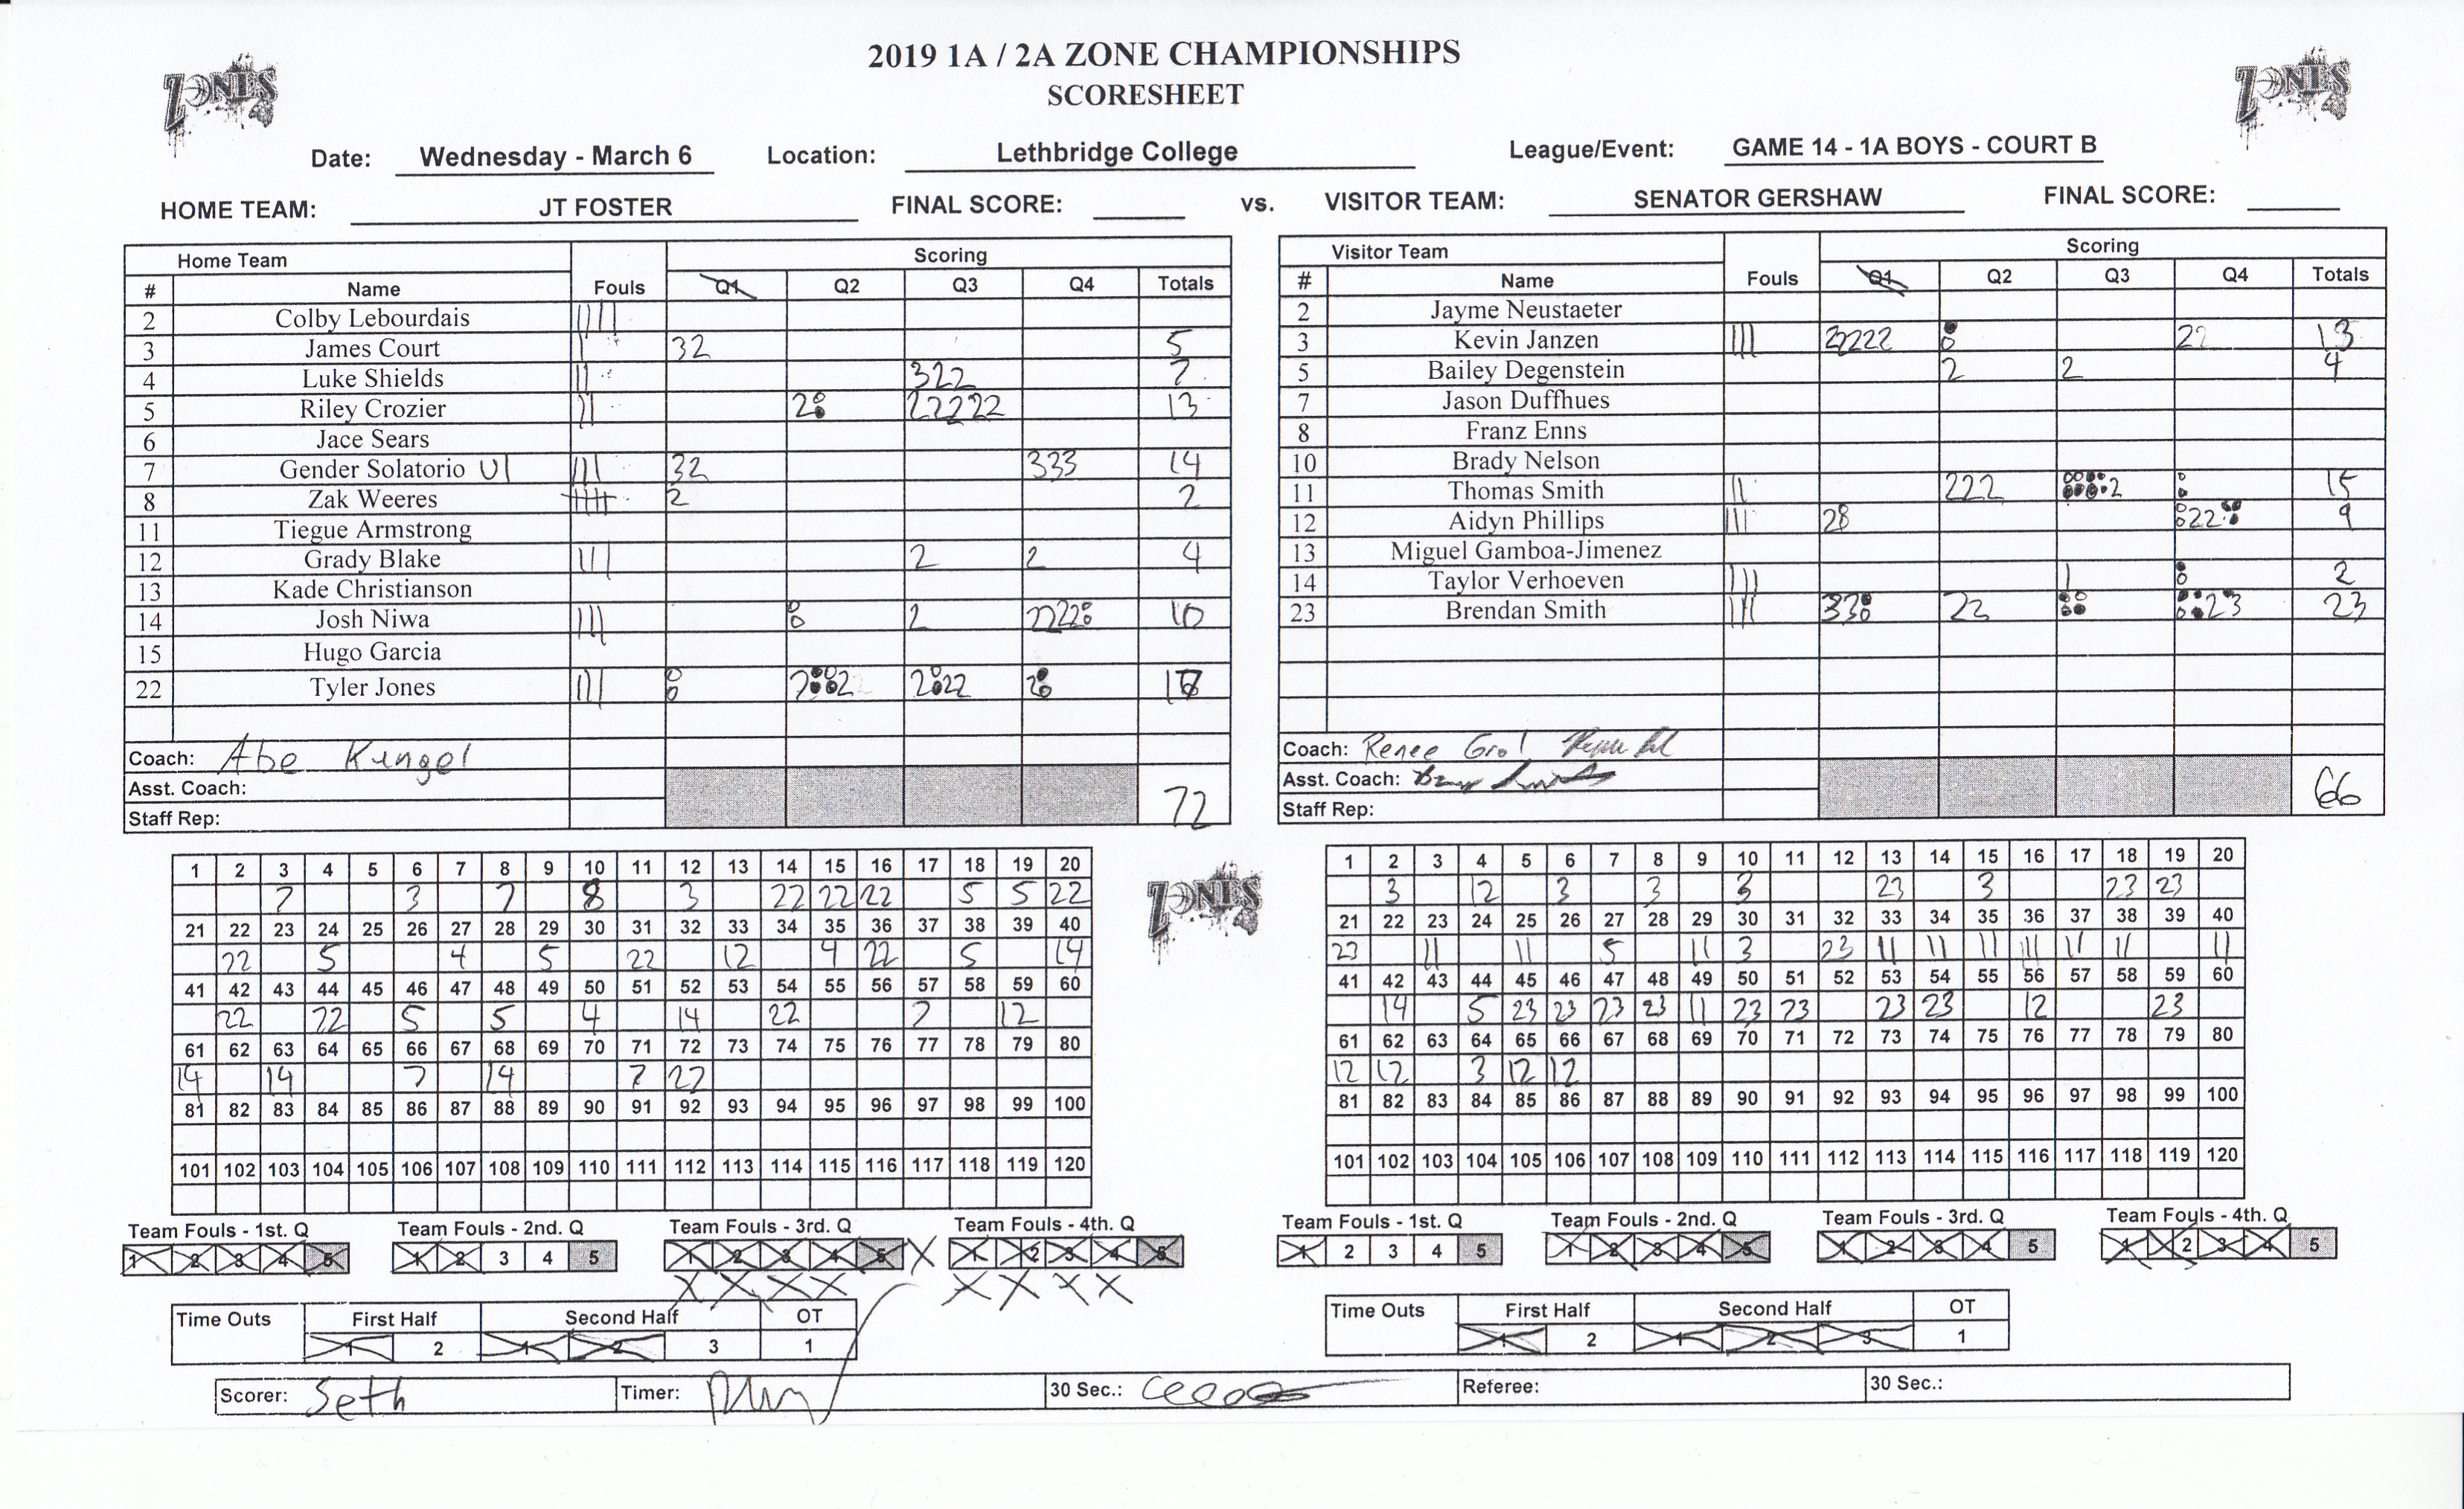 2019 1A / 2A ZONE CHAMPIONSHIPS
SCORESHEET
ZONES
ZONES
Date: Wednesday - March 6 Location: Lethbridge College League/Event: GAME 14 - 1A BOYS - COURT B
HOME TEAM: JT FOSTER FINAL SCORE: vs. VISITOR TEAM: SENATOR GERSHAW FINAL SCORE:
Home Team Fouls Scoring
# Name Q1 Q2 Q3 Q4 Totals
2 Colby Lebourdais
3 James Court 32 5
4 Luke Shields 322 7
5 Riley Crozier 2 22222 13
6 Jace Sears
7 Gender Solatorio U1 32 333 14
8 Zak Weeres 2 2
11 Tiegue Armstrong
12 Grady Blake 2 2 4
13 Kade Christianson
14 Josh Niwa 2 222 10
15 Hugo Garcia
22 Tyler Jones 2 2 2 22 2
Coach: Abe Kengel
Asst. Coach:
Staff Rep:
72
Visitor Team Fouls Scoring
# Name Q1 Q2 Q3 Q4 Totals
2 Jayme Neustaeter
3 Kevin Janzen 2222 22 13
5 Bailey Degenstein 2 2 4
7 Jason Duffhues
8 Franz Enns
10 Brady Nelson
11 Thomas Smith 222 2 15
12 Aidyn Phillips 2 22 9
13 Miguel Gamboa-Jimenez
14 Taylor Verhoeven 2
23 Brendan Smith 33 22 23 23
Coach: Renee
Asst. Coach:
Staff Rep:
66
1 2 3 4 5 6 7 8 9 10 11 12 13 14 15 16 17 18 19 20
7 3 7 8 3 22 22 22 5 5 22
21 22 23 24 25 26 27 28 29 30 31 32 33 34 35 36 37 38 39 40
22 5 4 5 22 12 4 22 5 14
41 42 43 44 45 46 47 48 49 50 51 52 53 54 55 56 57 58 59 60
22 22 5 5 4 14 22 7 12
61 62 63 64 65 66 67 68 69 70 71 72 73 74 75 76 77 78 79 80
14 14 7 14 7 22
81 82 83 84 85 86 87 88 89 90 91 92 93 94 95 96 97 98 99 100
101 102 103 104 105 106 107 108 109 110 111 112 113 114 115 116 117 118 119 120
ZONES
1 2 3 4 5 6 7 8 9 10 11 12 13 14 15 16 17 18 19 20
3 12 3 3 3 23 3 23 23
21 22 23 24 25 26 27 28 29 30 31 32 33 34 35 36 37 38 39 40
23 11 11 5 11 3 23 11 11 11 11 11 11 11
41 42 43 44 45 46 47 48 49 50 51 52 53 54 55 56 57 58 59 60
14 5 23 23 23 23 11 23 23 23 23 12 23
61 62 63 64 65 66 67 68 69 70 71 72 73 74 75 76 77 78 79 80
12 12 3 12 12
81 82 83 84 85 86 87 88 89 90 91 92 93 94 95 96 97 98 99 100
101 102 103 104 105 106 107 108 109 110 111 112 113 114 115 116 117 118 119 120
Team Fouls - 1st. Q Team Fouls - 2nd. Q Team Fouls - 3rd. Q Team Fouls - 4th. Q
1 2 3 4 5 1 2 3 4 5 1 2 3 4 5 X 1 2 3 4 5
X X X X X X X X
Team Fouls - 1st. Q Team Fouls - 2nd. Q Team Fouls - 3rd. Q Team Fouls - 4th. Q
1 2 3 4 5 1 2 3 4 5 1 2 3 4 5 1 2 3 4 5
Time Outs First Half Second Half OT
1 2 1 2 3 1
Time Outs First Half Second Half OT
1 2 1 2 3 1
Scorer: Seth Timer: 30 Sec.: Referee: 30 Sec.: